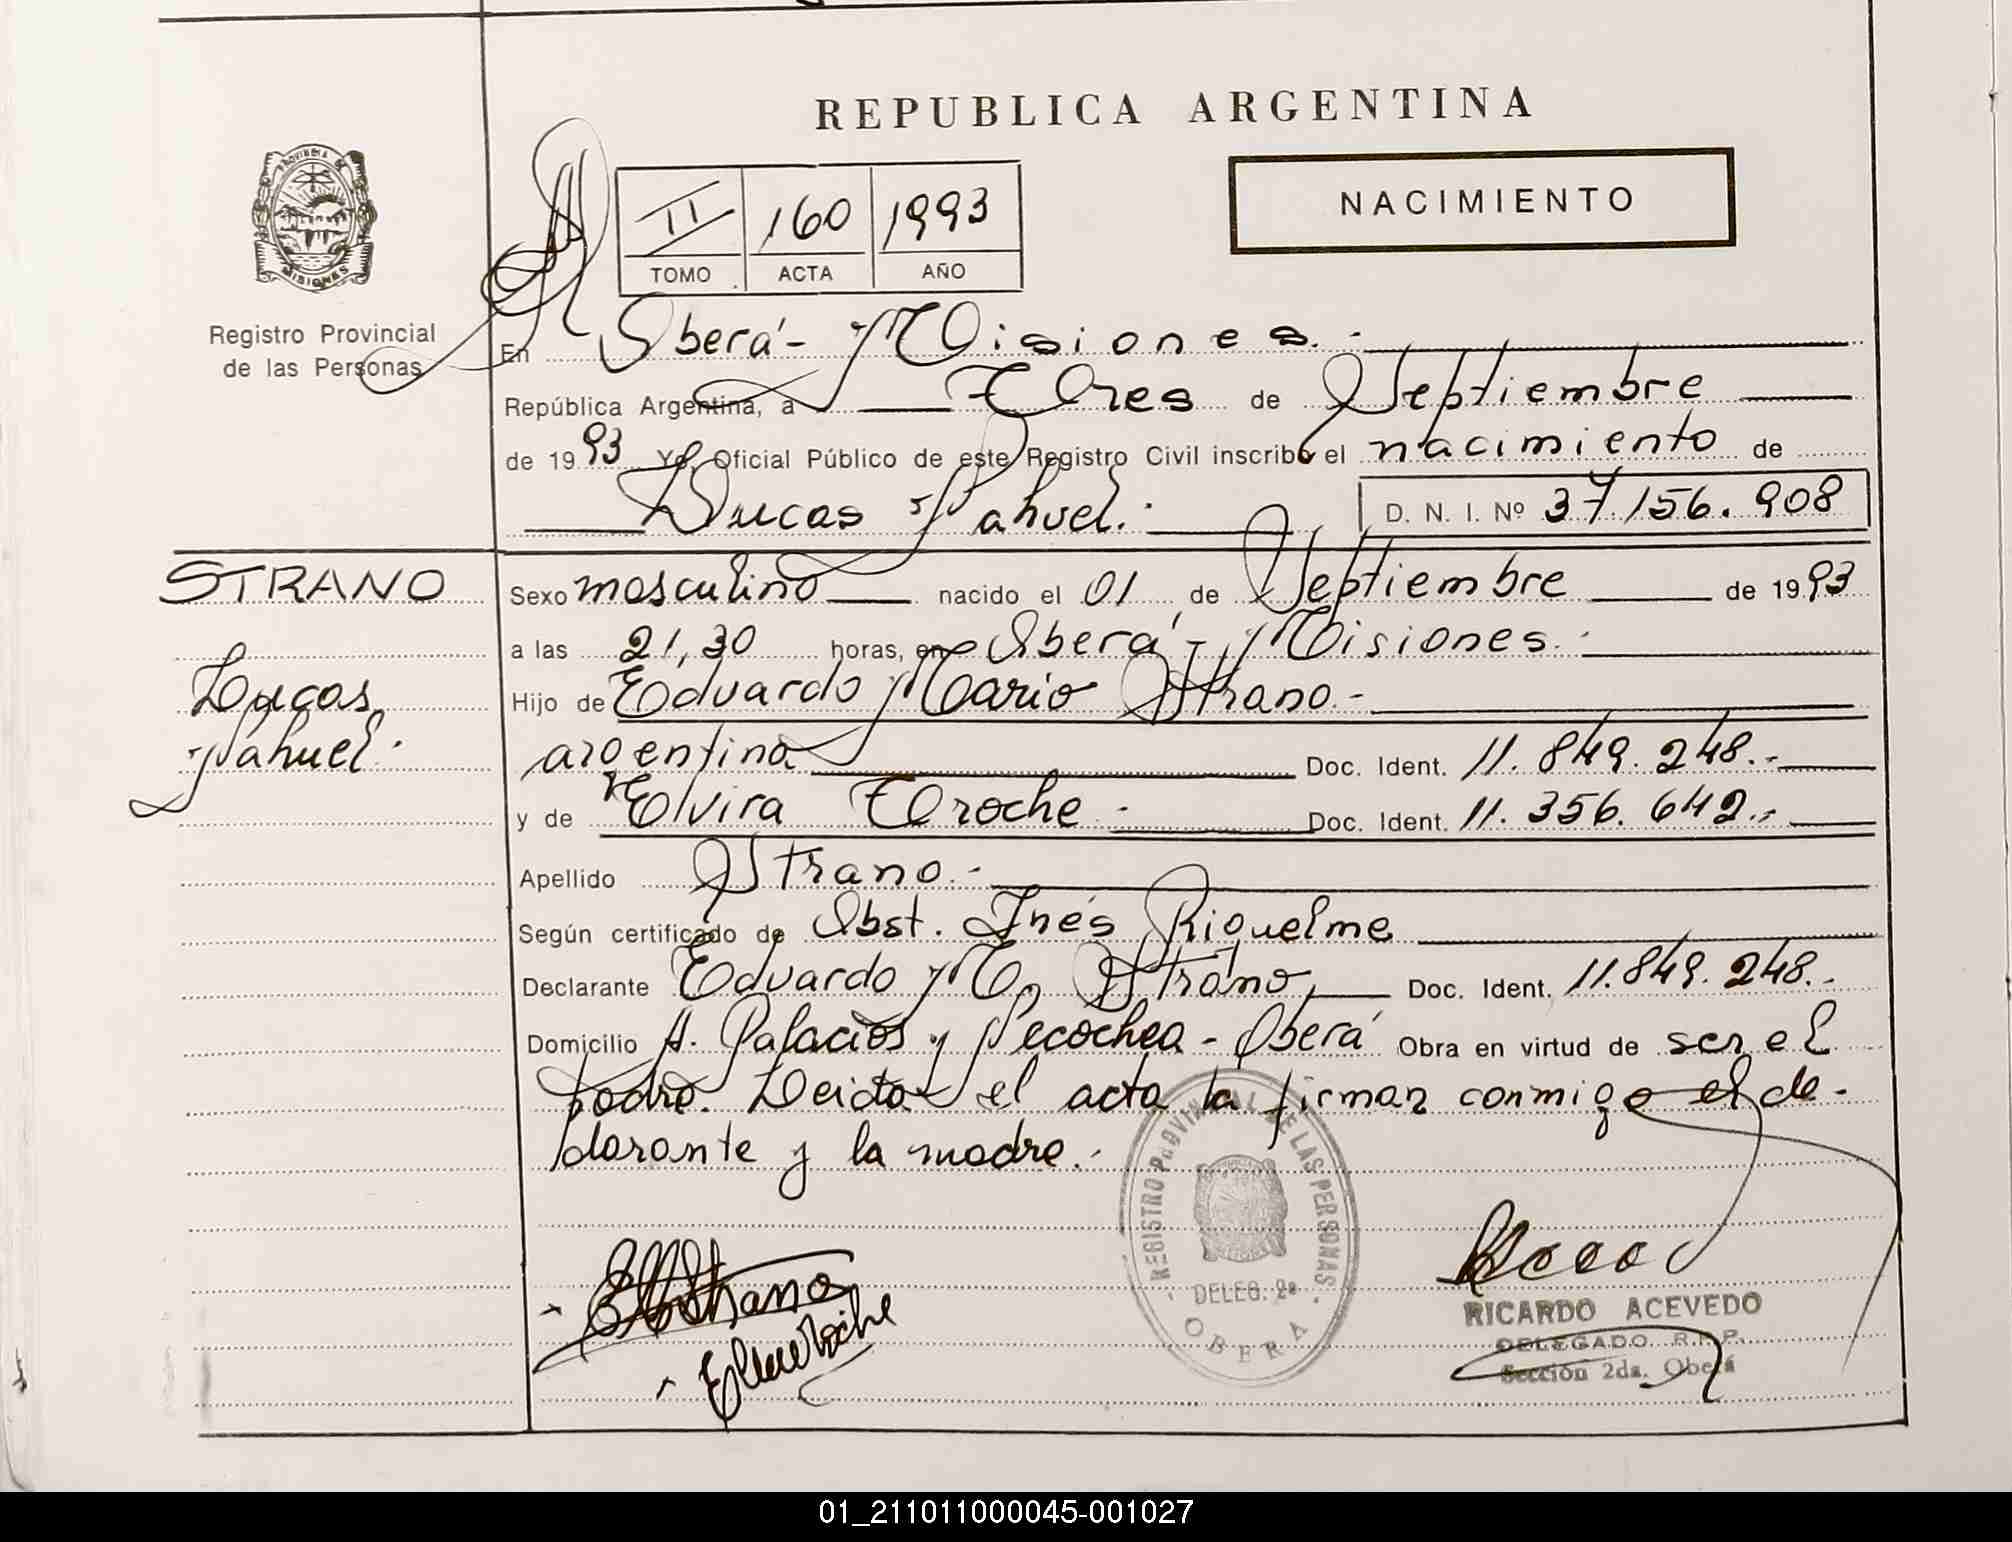 REPUBLICA ARGENTINA
NACIMIENTO
PROVINCIA DE
MISIONES
Registro Provincial
de las Personas
II 160 1993
TOMO ACTA AÑO
En Oberá - Misiones.-
República Argentina, a Tres de Septiembre
de 1993 Yo, Oficial Público de este Registro Civil inscribo el nacimiento de
Lucas Nahuel.- D. N. I. Nº 37.156.908
STRANO
Lucas
Nahuel.
Sexo masculino nacido el 01 de Septiembre de 1993
a las 21,30 horas, en Oberá - Misiones.-
Hijo de Eduardo Mario Strano.-
argentina Doc. Ident. 11.849.248.-
y de Elvira Troche.- Doc. Ident. 11.356.642.-
Apellido Strano.-
Según certificado de Obst. Inés Riquelme
Declarante Eduardo M. Strano, Doc. Ident. 11.849.248.-
Domicilio A. Palacios y Necochea - Oberá Obra en virtud de ser el
padre. Leida el acta la firman conmigo el de-
clarante y la madre.-
REGISTRO PROVINCIAL DE LAS PERSONAS
DELEG. 2a
OBERA
EMStrano
Elvira Troche
RICARDO ACEVEDO
DELEGADO R.P.P.
Sección 2da. Oberá
01_211011000045-001027